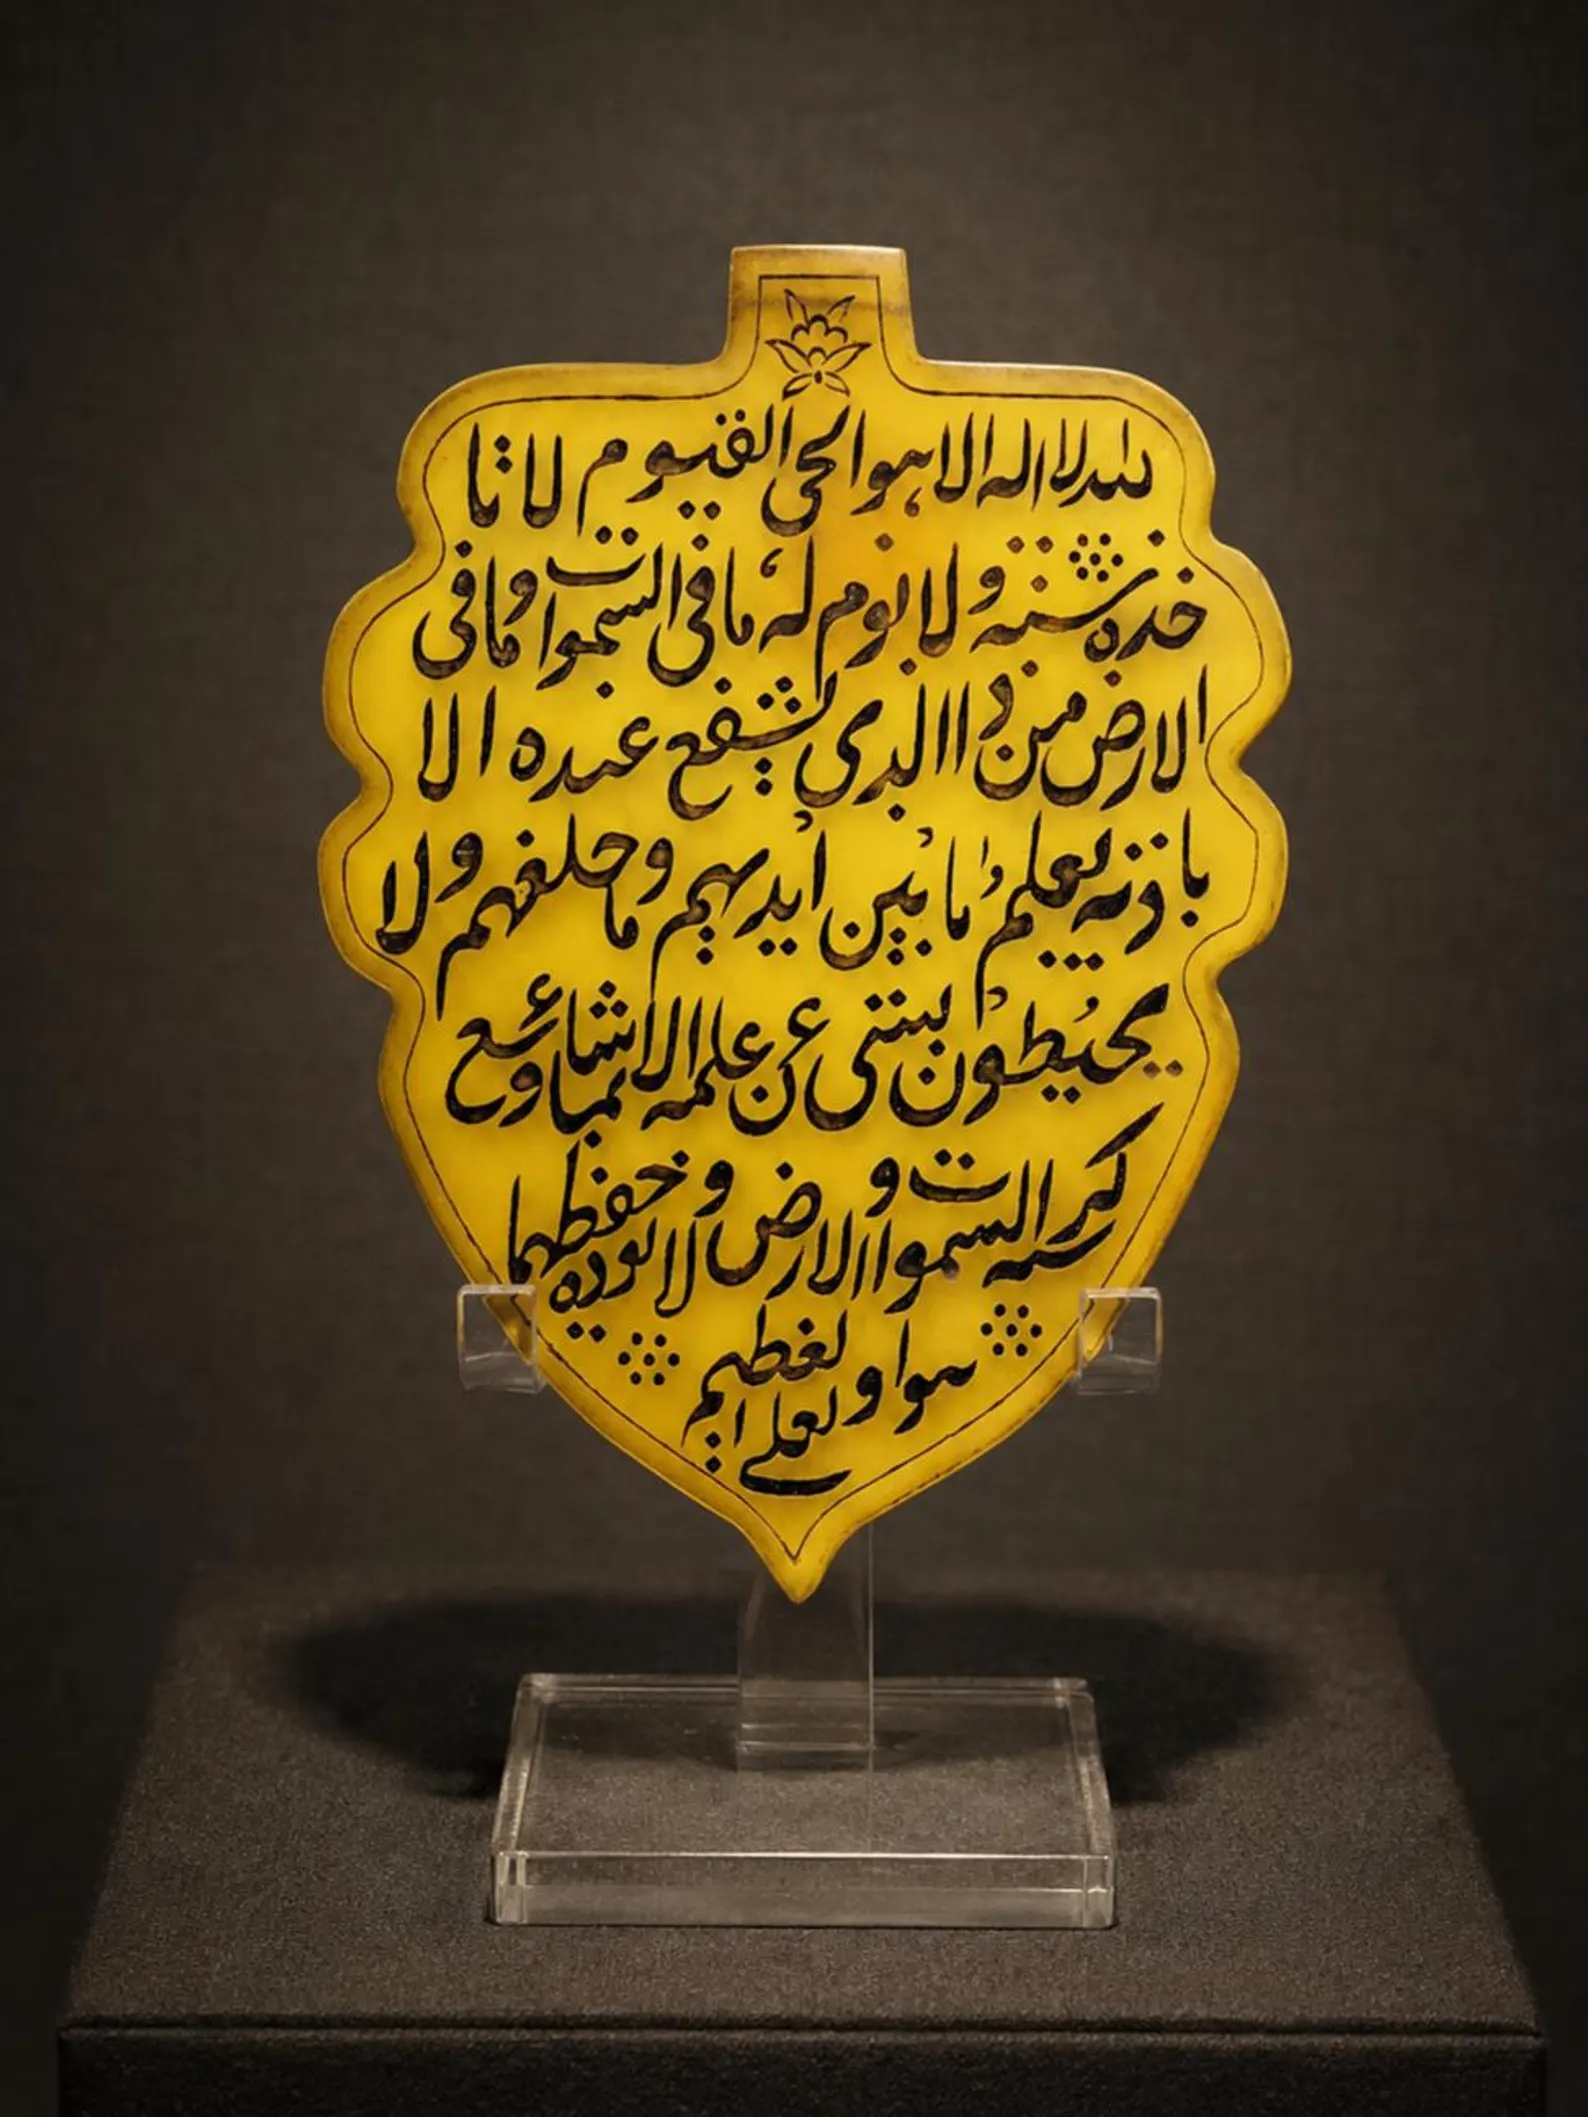 الله لا اله الا هو الحی القیوم لا تا
خذه سنة و لا نوم له ما فی السموات و ما فی
الارض من ذا الذی یشفع عنده الا
باذنه یعلم ما بین ایدیهم و ما خلفهم و لا
یحیطون بشی عن علمه الا بما شاء وسع
کرسیه السموات و الارض و لا یوده حفظهما
هوا و لعلی العظیم